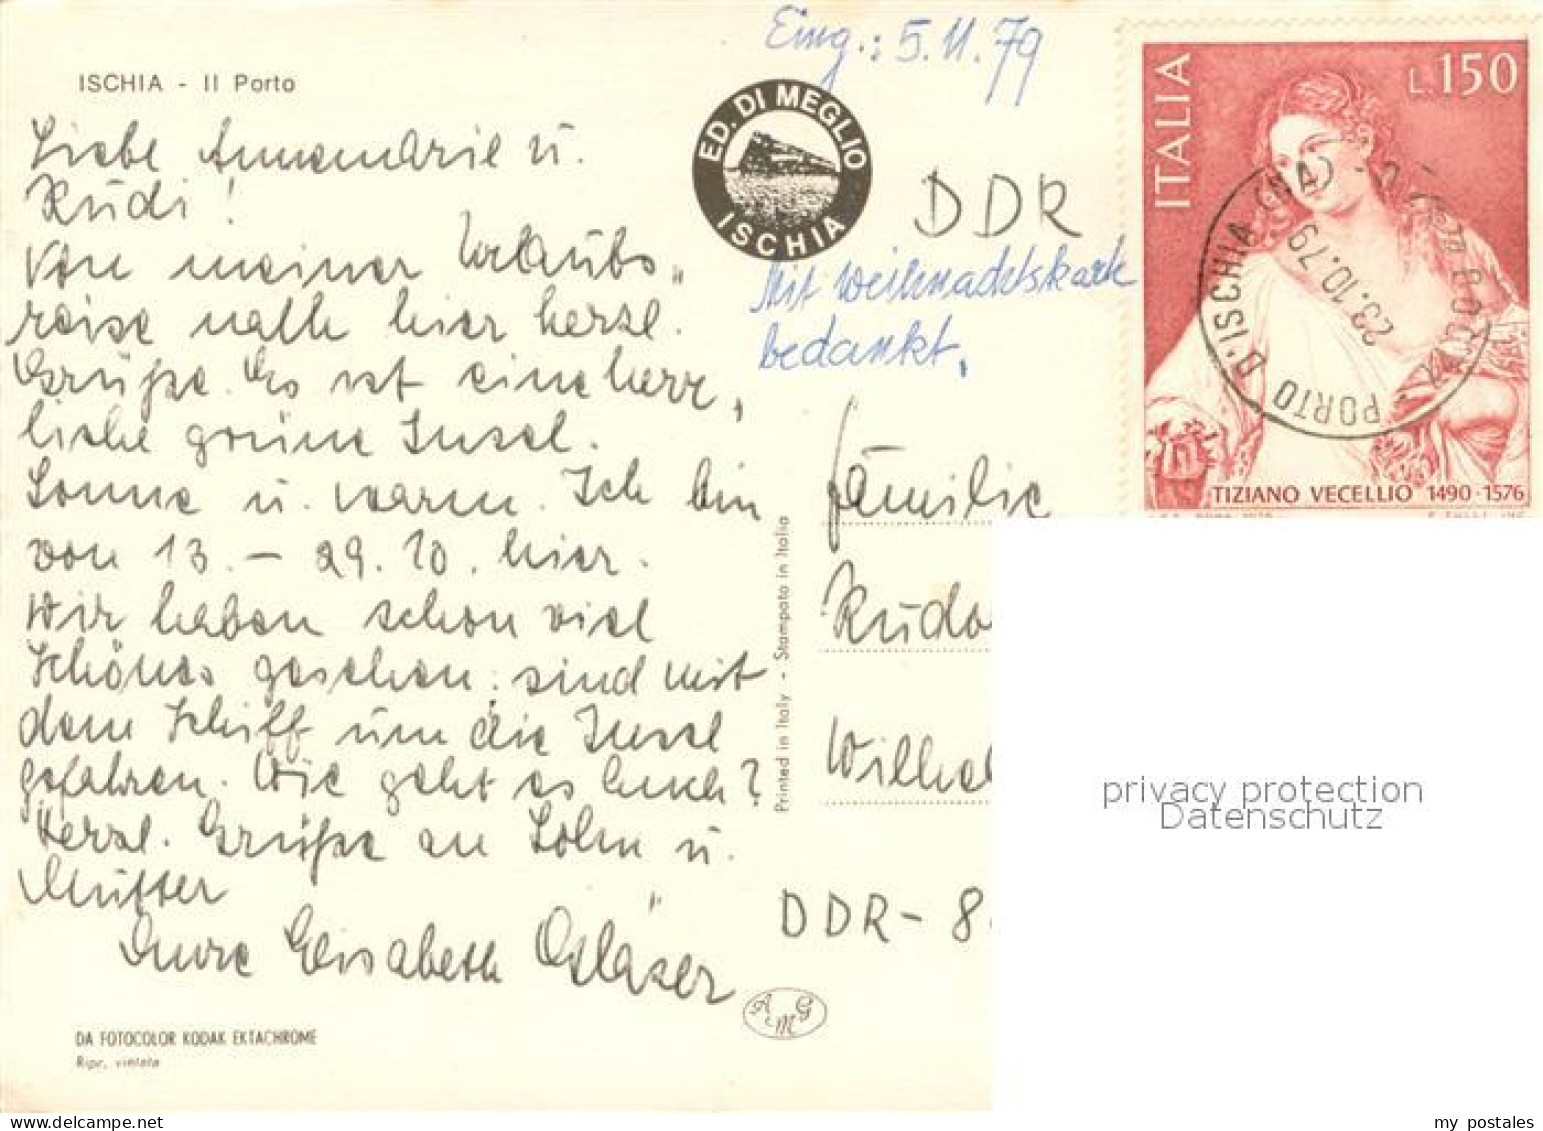 ISCHIA - Il Porto
Liebe Annemarie u.
Rudi!
Von meiner Urlaubs„
reise
hier herzl.
Grüße. Es ist eine herr„
liche grüne Insel.
Sonne u. warm. Ich bin
von 13. - 29. 10. hier.
Wir haben schon viel
Schönes gesehen; sind mit
dem Schiff um die Insel
gefahren. Wie geht es Euch?
Herzl. Grüße an Sohn u.
Mutter
Eure Elisabeth Gläser
DA FOTOCOLOR KODAK EKTACHROME
Ripr. vietata
ED. DI MEGLIO
ISCHIA
Eing.: 5.11.79
DDR
Mit Weihnachtskarte
bedankt.
Printed in Italy - Stampato in Italia
ITALIA
L.150
TIZIANO VECELLIO 1490-1576
PORTO D'ISCHIA (NA)
23.10.79
Familie
Rudo
Wilhel
DDR - 8
AMG
privacy protection
Datenschutz
my postales